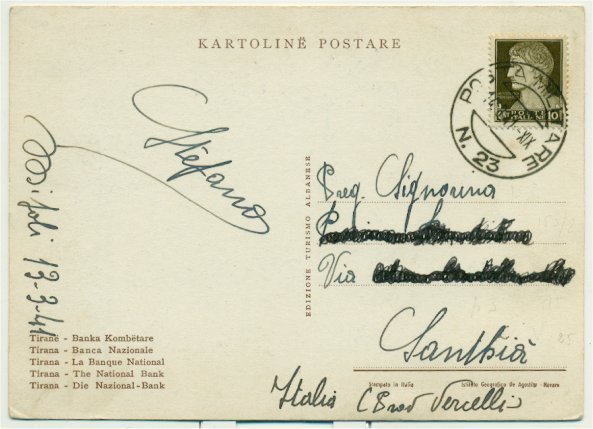 KARTOLINË POSTARE
POSTA MILITARE
N. 23
XIX
10
Stefano
13-3-41
EDIZIONE TURISMO ALBANESE
Preg. Signorina
Via
Santhià
Italia (Prov Vercelli)
Tiranë - Banka Kombëtare
Tirana - Banca Nazionale
Tirana - La Banque National
Tirana - The National Bank
Tirana - Die Nazional-Bank
Stampato in Italia
Istituto Geografico De Agostini - Novara